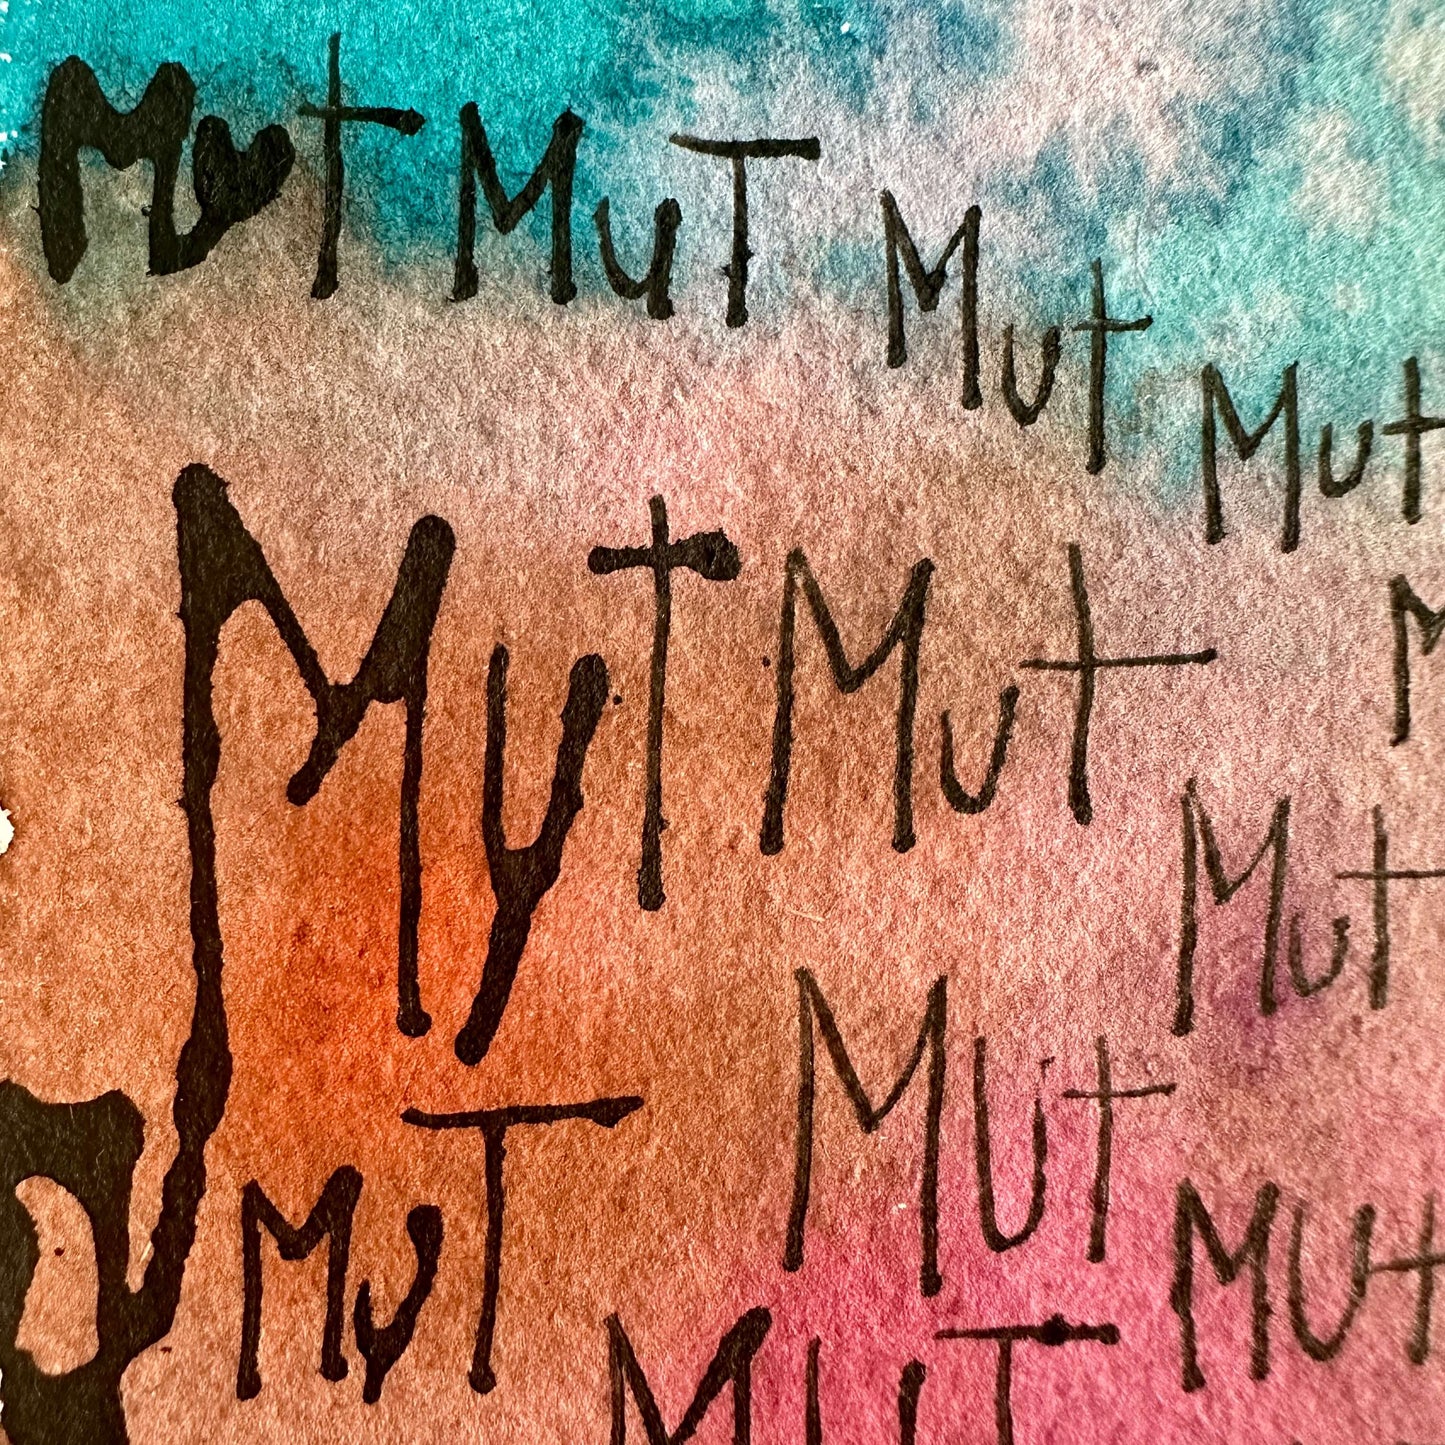 Mut MuT Mut Mut
MuT Mut M
Mut
Mut
MuT Mut
MuT